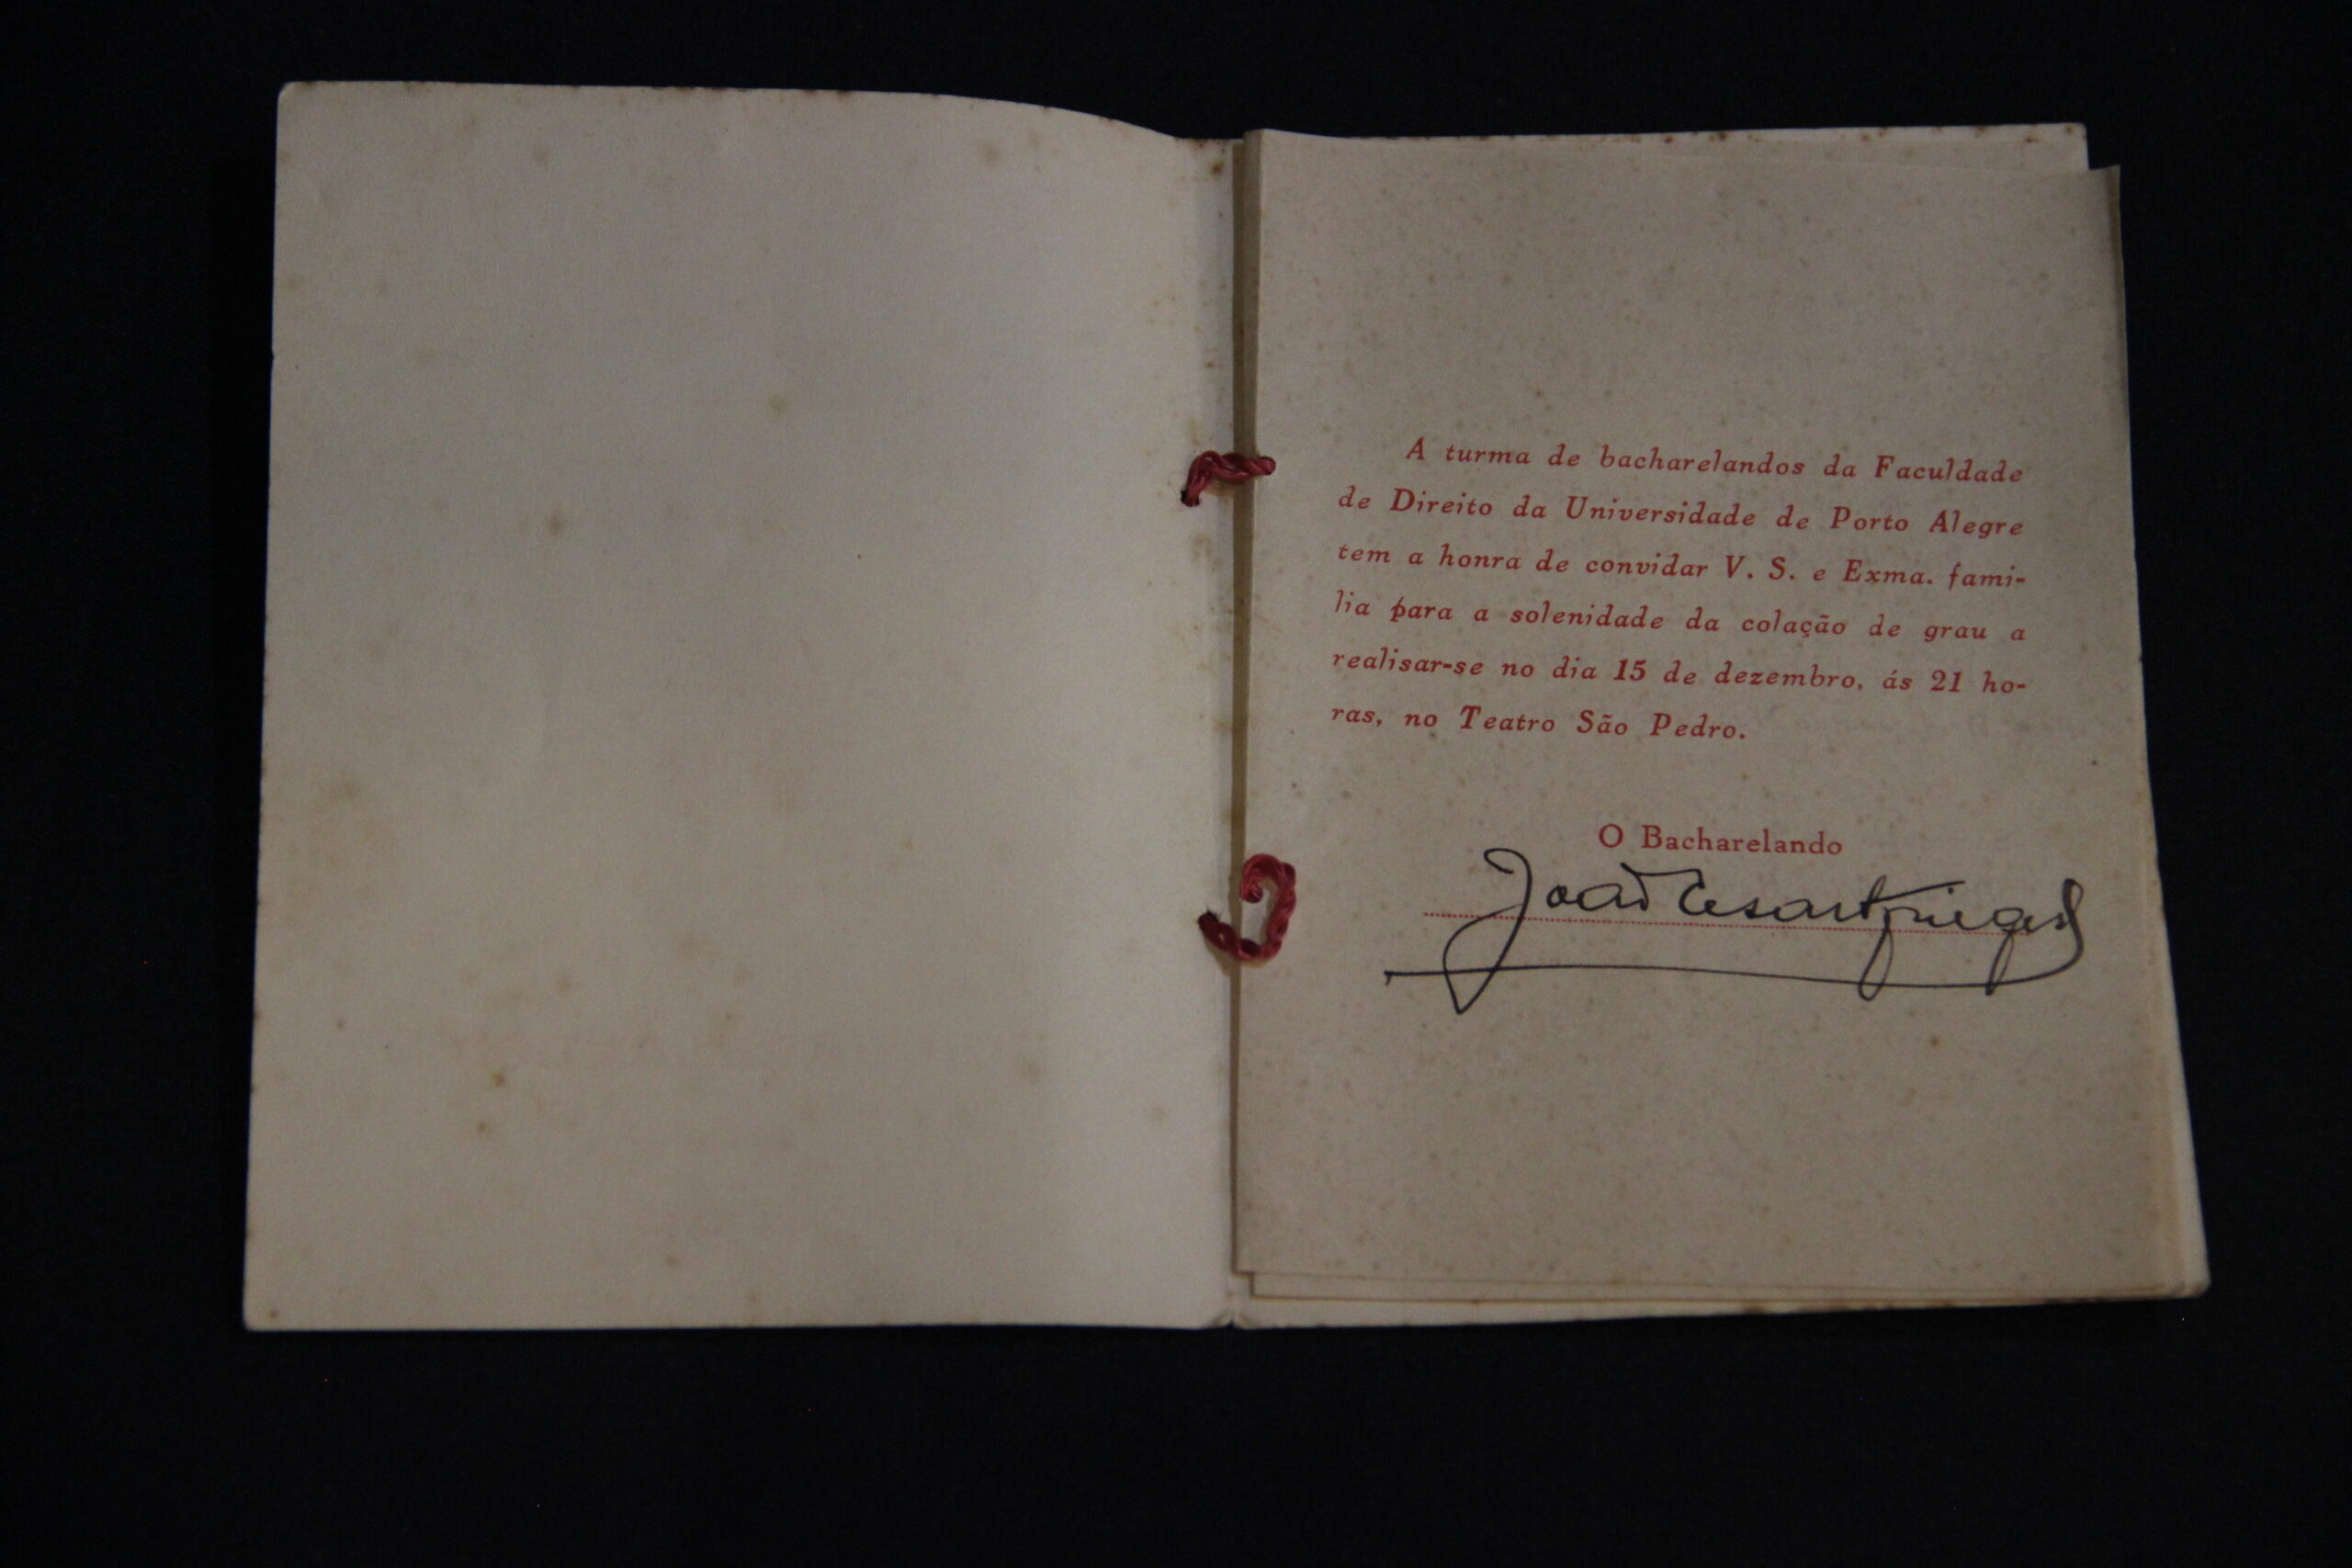 A turma de bacharelandos da Faculdade
de Direito da Universidade de Porto Alegre
tem a honra de convidar V. S. e Exma. fami-
lia para a solenidade da colação de grau a
realisar-se no dia 15 de dezembro, ás 21 ho-
ras, no Teatro São Pedro.
O Bacharelando
João Cesar